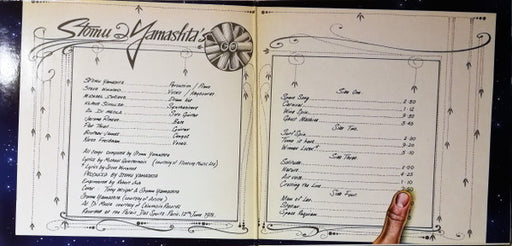 Stomu Yamashta's
GO
Stomu Yamashta Percussion / Piano
Steve Winwood Vocals / Keyboards
Michael Shrieve Drum Kit
Klaus Schulze Synthesizers
Al Di Meola Solo Guitar
Jerome Rimson Bass
Pat Thrall Guitar
Brother James Congas
Karen Friedman Vocals
All songs composed by Stomu Yamashta
Lyrics by Michael Quartermain
Lyrics by Steve Winwood
Produced by Stomu Yamashta
Engineered by Robert
Cover Tony Wright & Stomu Yamashta
Stomu Yamashta (courtesy of Arista)
Al Di Meola courtesy of Columbia Records
Recorded at the Palais Des Sports Paris. 12th June 1976
Side One
Space Song 2·30
Carnival 1·12
Wind Spin
Ghost Machine 3·45
Side Two
Surf Spin
Time is here
Winner Loser
Side Three
Solitude 2·00
Nature 4·25
Air voice 1·25
Crossing the Line
Side Four
Man of Leo
Stellar
Space Requiem